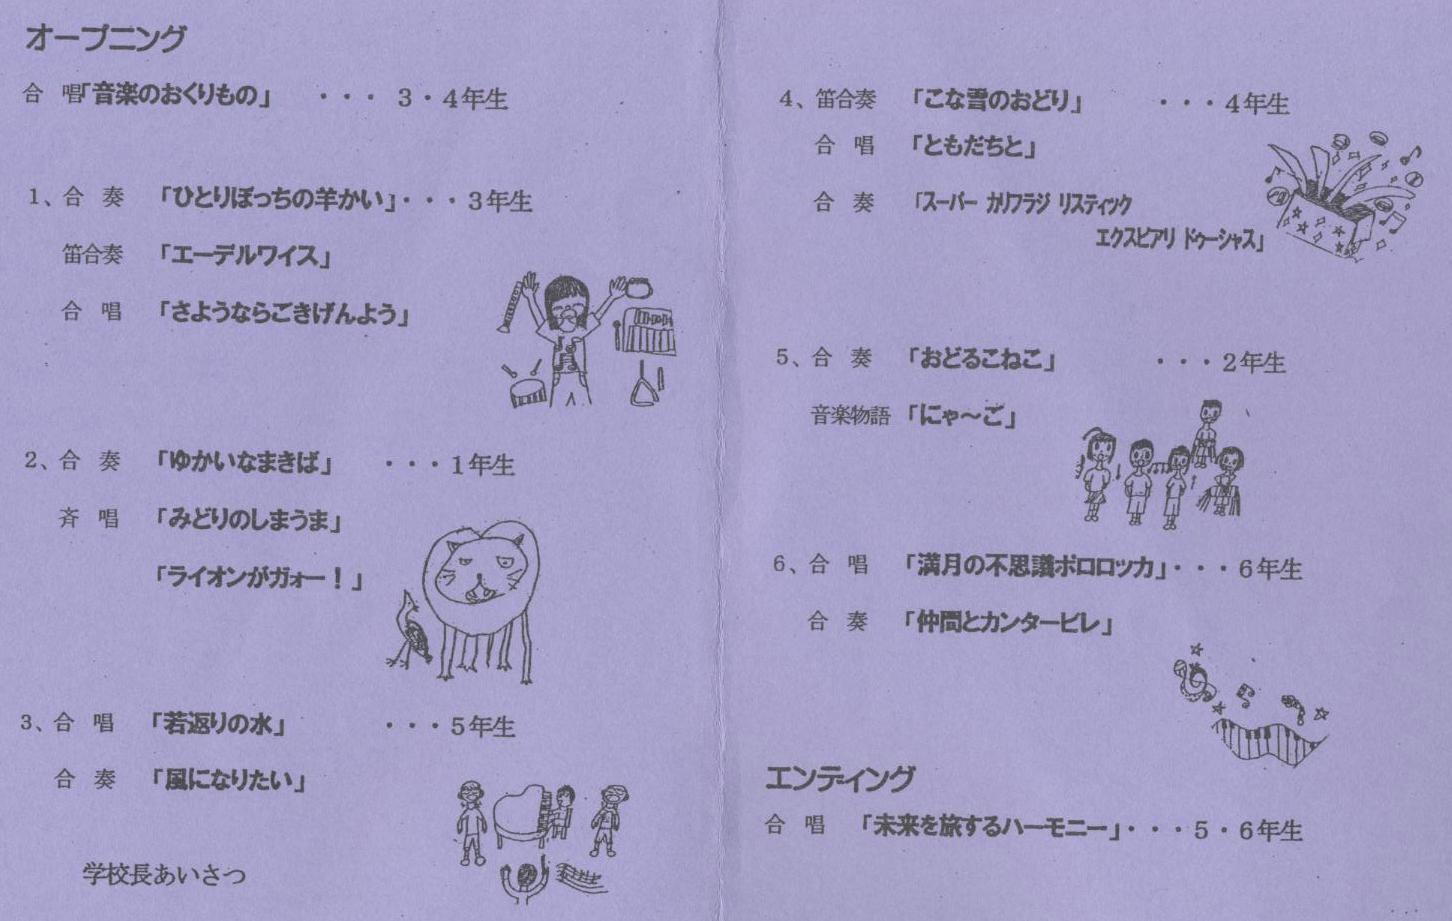 オープニング
合 唱「音楽のおくりもの」 ・・・ 3・4年生
1、合 奏 「ひとりぼっちの羊かい」・・・3年生
笛合奏 「エーデルワイス」
合 唱 「さようならごきげんよう」
2、合 奏 「ゆかいなまきば」 ・・・1年生
斉 唱 「みどりのしまうま」
「ライオンがガォー！」
3、合 唱 「若返りの水」 ・・・5年生
合 奏 「風になりたい」
学校長あいさつ
4、笛合奏 「こな雪のおどり」 ・・・4年生
合 唱 「ともだちと」
合 奏 「スーパー カリフラジ リスティック
エクスピアリ ドゥーシャス」
5、合 奏 「おどるこねこ」 ・・・2年生
音楽物語 「にゃ〜ご」
6、合 唱 「満月の不思議ポロロッカ」・・・6年生
合 奏 「仲間とカンタービレ」
エンディング
合 唱 「未来を旅するハーモニー」・・・5・6年生